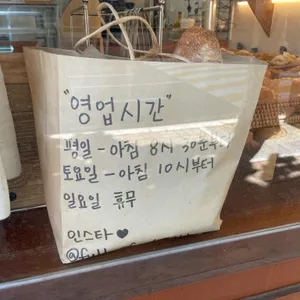 "영업시간"
평일 - 아침 8시 30분부터
토요일 - 아침 10시부터
일요일 휴무
인스타 ♥